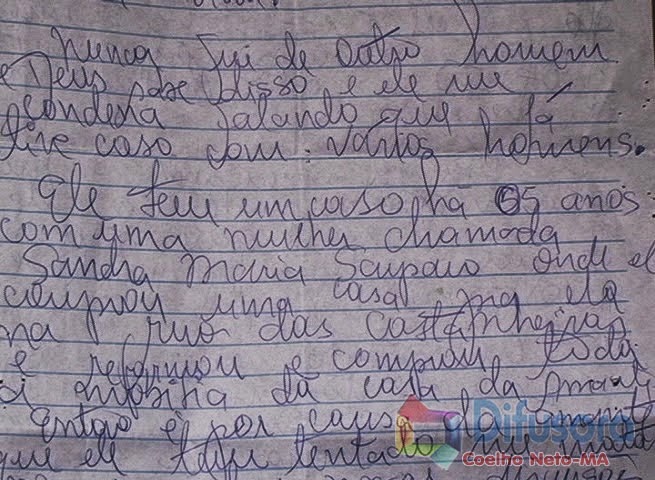 Nunca fui de outro homem
e Deus sabe disso e ele me
condena falando que já
tive caso com varios homens.
Ele tem um caso há 05 anos
com uma mulher chamada
Sandra Maria Sampaio onde el
comprou uma casa pra ela
na rua das castanheiras
e reformou e comprou toda
a mobilia da casa da
Então é por causa da
que ele tem tentado me
Difusora
Coelho Neto-MA